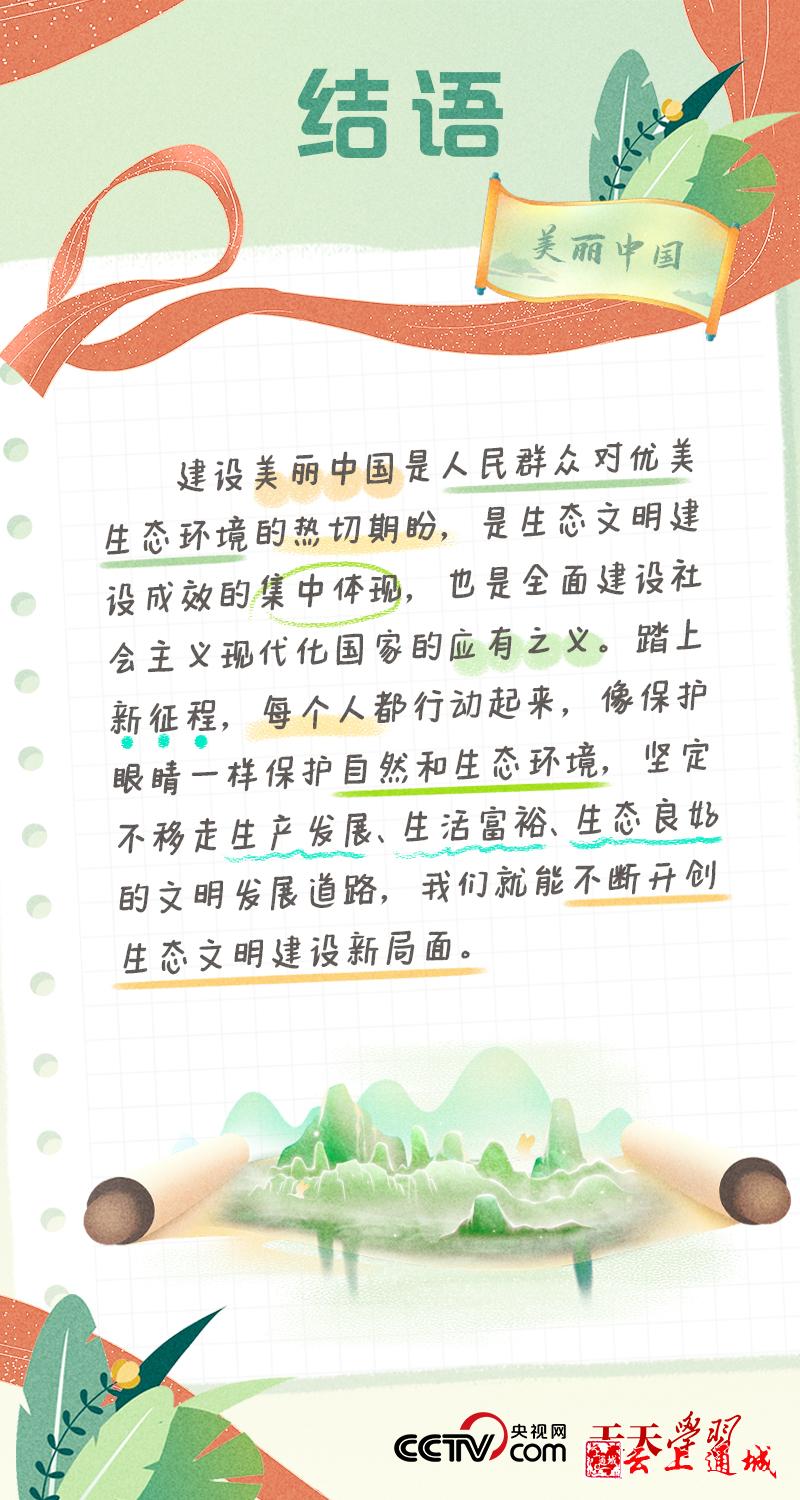 结语
美丽中国
建设美丽中国是人民群众对优美
生态环境的热切期盼，是生态文明建
设成效的集中体现，也是全面建设社
会主义现代化国家的应有之义。踏上
新征程，每个人都行动起来，像保护
眼睛一样保护自然和生态环境，坚定
不移走生产发展、生活富裕、生态良好
的文明发展道路，我们就能不断开创
生态文明建设新局面。
CCTV.com 央视网
天天学习
云上通城